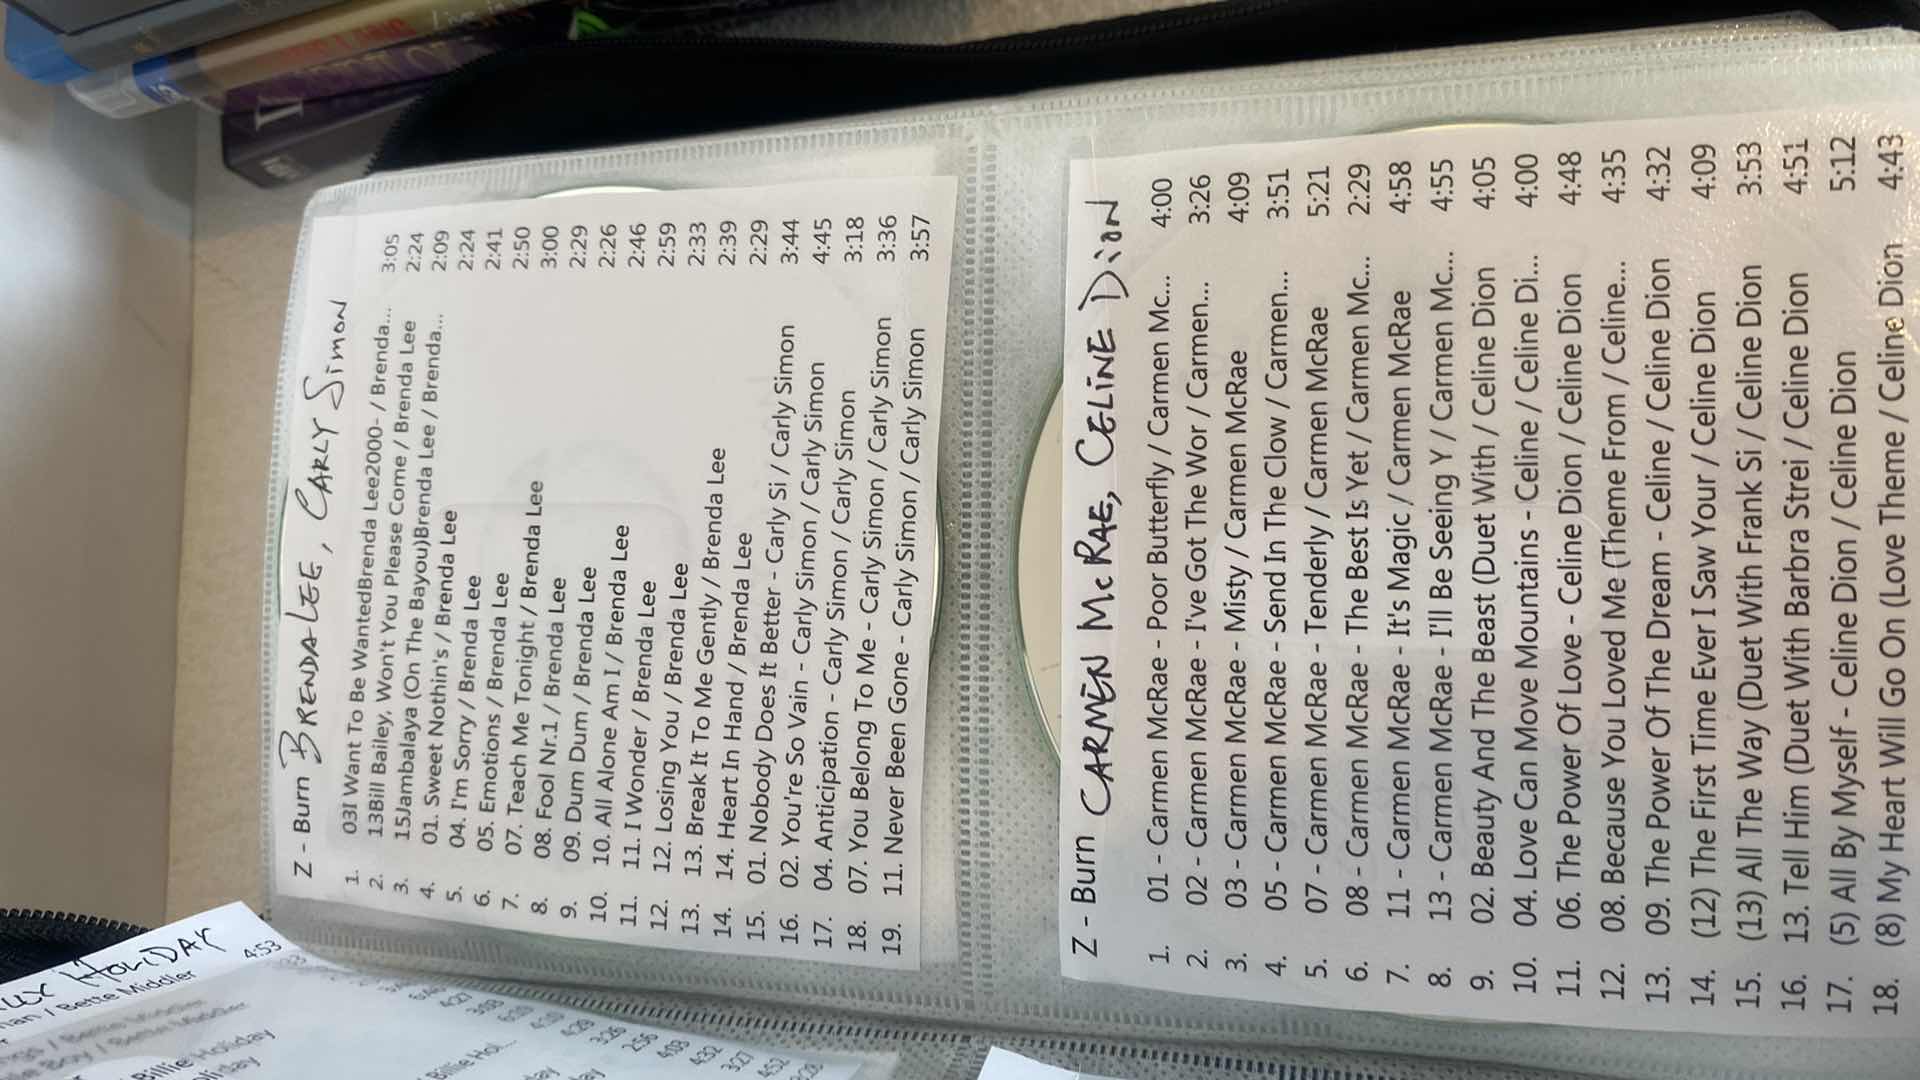 HOLIDAY
/ Bette Middler
4:53
Billie Holiday
Z - Burn BRENDA LEE, CARLY SIMON
1. 03I Want To Be WantedBrenda Lee2000- / Brenda... 3:05
2. 13Bill Bailey, Won't You Please Come / Brenda Lee 2:24
3. 15Jambalaya (On The Bayou)Brenda Lee / Brenda... 2:09
4. 01. Sweet Nothin's / Brenda Lee 2:24
5. 04. I'm Sorry / Brenda Lee 2:41
6. 05. Emotions / Brenda Lee 2:50
7. 07. Teach Me Tonight / Brenda Lee 3:00
8. 08. Fool Nr.1 / Brenda Lee 2:29
9. 09. Dum Dum / Brenda Lee 2:26
10. 10. All Alone Am I / Brenda Lee 2:46
11. 11. I Wonder / Brenda Lee 2:59
12. 12. Losing You / Brenda Lee 2:33
13. 13. Break It To Me Gently / Brenda Lee 2:39
14. 14. Heart In Hand / Brenda Lee 2:29
15. 01. Nobody Does It Better - Carly Si / Carly Simon 3:44
16. 02. You're So Vain - Carly Simon / Carly Simon 4:45
17. 04. Anticipation - Carly Simon / Carly Simon 3:18
18. 07. You Belong To Me - Carly Simon / Carly Simon 3:36
19. 11. Never Been Gone - Carly Simon / Carly Simon 3:57
Z - Burn CARMEN McRAE, CELINE DION
1. 01 - Carmen McRae - Poor Butterfly / Carmen Mc... 4:00
2. 02 - Carmen McRae - I've Got The Wor / Carmen... 3:26
3. 03 - Carmen McRae - Misty / Carmen McRae 4:09
4. 05 - Carmen McRae - Send In The Clow / Carmen... 3:51
5. 07 - Carmen McRae - Tenderly / Carmen McRae 5:21
6. 08 - Carmen McRae - The Best Is Yet / Carmen Mc... 2:29
7. 11 - Carmen McRae - It's Magic / Carmen McRae 4:58
8. 13 - Carmen McRae - I'll Be Seeing Y / Carmen Mc... 4:55
9. 02. Beauty And The Beast (Duet With / Celine Dion 4:05
10. 04. Love Can Move Mountains - Celine / Celine Di... 4:00
11. 06. The Power Of Love - Celine Dion / Celine Dion 4:48
12. 08. Because You Loved Me (Theme From / Celine... 4:35
13. 09. The Power Of The Dream - Celine / Celine Dion 4:32
14. (12) The First Time Ever I Saw Your / Celine Dion 4:09
15. (13) All The Way (Duet With Frank Si / Celine Dion 3:53
16. 13. Tell Him (Duet With Barbra Strei / Celine Dion 4:51
17. (5) All By Myself - Celine Dion / Celine Dion 5:12
18. (8) My Heart Will Go On (Love Theme / Celine Dion 4:43